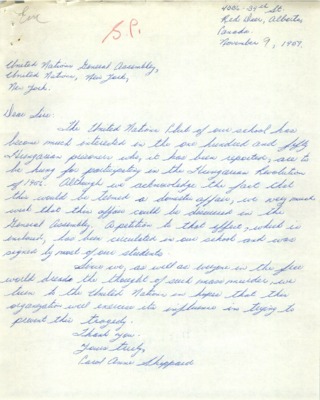 S.P.
4006-34th St.
Red Deer, Alberta,
Canada.
November 9, 1959.
United Nations General Assembly,
United Nations, New York,
New York.
Dear Sirs:
The United Nations Club of our school has
become much interested in the one hundred and fifty
Hungarian prisoners who, it has been reported, are to
be hung for participating in the Hungarian Revolution
of 1956. Although we acknowledge the fact that
this would be termed a domestic affair, we very much
wish that this affair could be discussed in the
General Assembly. A petition to that effect, which is
enclosed, has been circulated in our school and was
signed by most of our students.
Since we, as well as everyone in the free
world dreads the thought of such mass murder, we
turn to the United Nations in hopes that this
organization will exercise its influence in trying to
prevent this tragedy.
Thank you.
Yours truly,
Carol Anne Sheppard